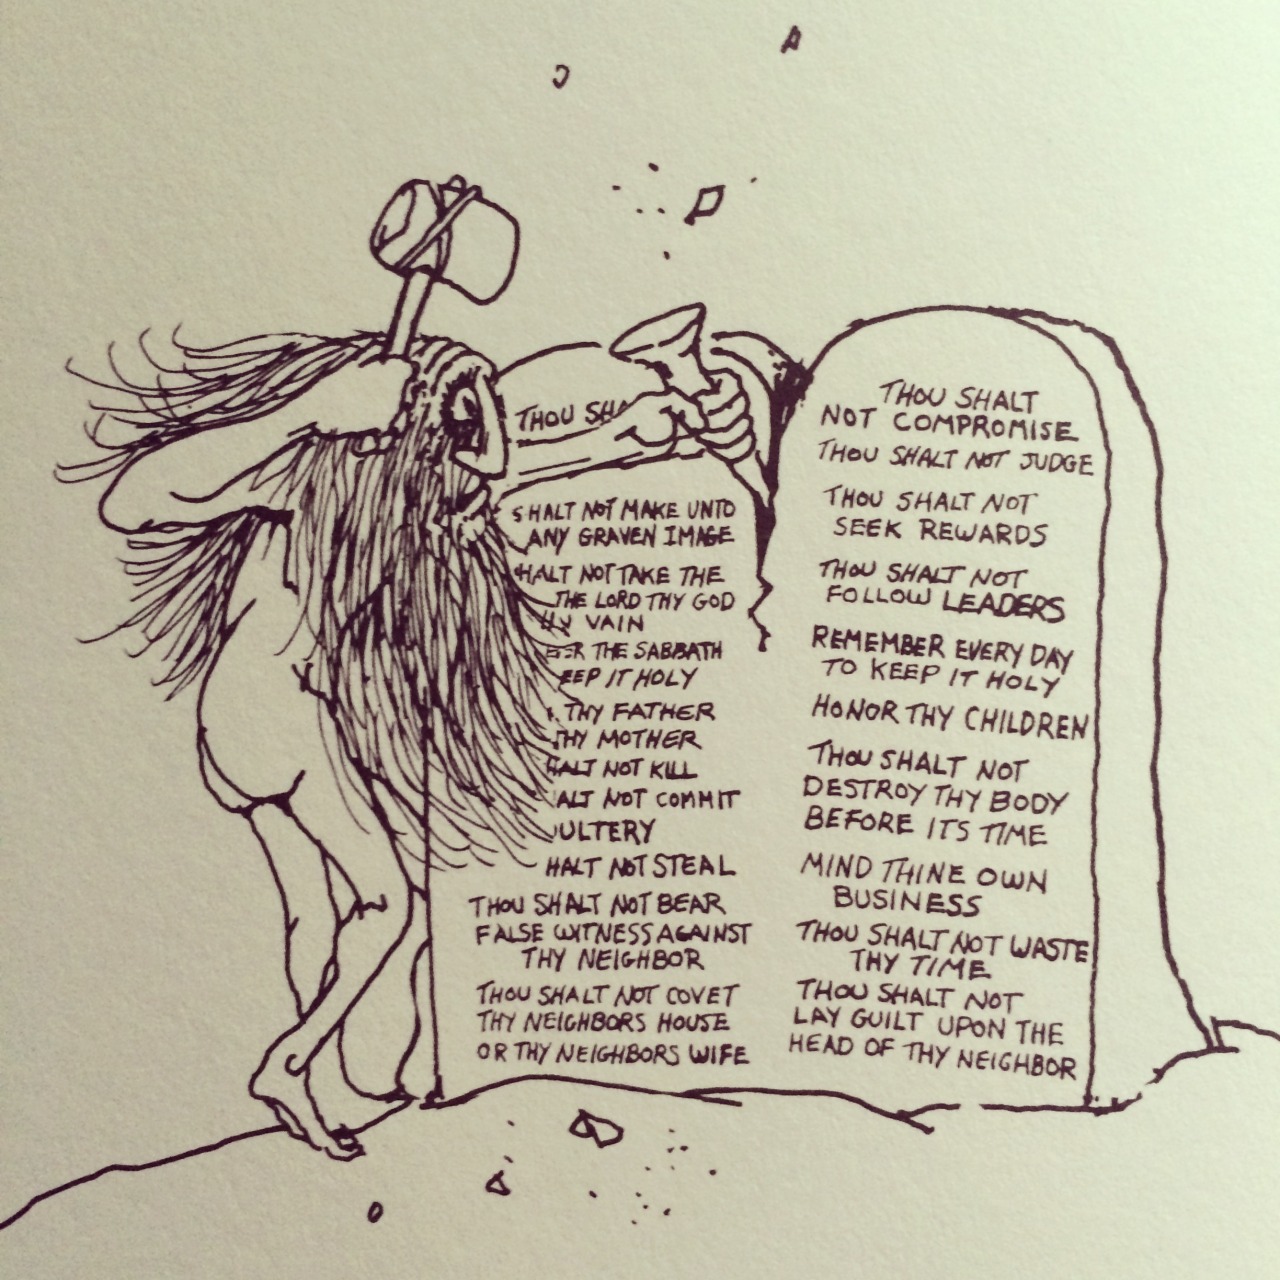 THOU
SHALT NOT MAKE UNTO
ANY GRAVEN IMAGE
HALT NOT TAKE THE
THE LORD THY GOD
VAIN
THE SABBATH
EEP IT HOLY
THY FATHER
THY MOTHER
HALT NOT KILL
ALT NOT COMMIT
ULTERY
HALT NOT STEAL
THOU SHALT NOT BEAR
FALSE WITNESS AGAINST
THY NEIGHBOR
THOU SHALT NOT COVET
THY NEIGHBORS HOUSE
OR THY NEIGHBORS WIFE
THOU SHALT
NOT COMPROMISE
THOU SHALT NOT JUDGE
THOU SHALT NOT
SEEK REWARDS
THOU SHALT NOT
FOLLOW LEADERS
REMEMBER EVERY DAY
TO KEEP IT HOLY
HONOR THY CHILDREN
THOU SHALT NOT
DESTROY THY BODY
BEFORE ITS TIME
MIND THINE OWN
BUSINESS
THOU SHALT NOT WASTE
THY TIME
THOU SHALT NOT
LAY GUILT UPON THE
HEAD OF THY NEIGHBOR